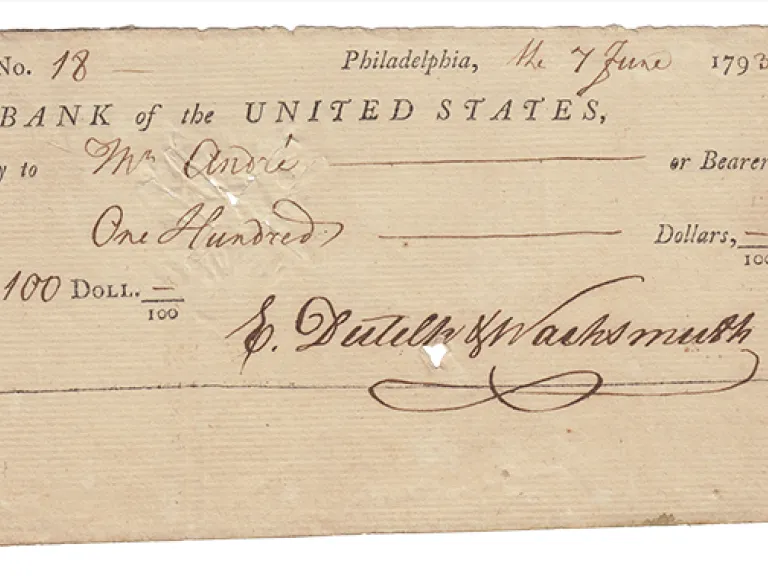 No. 18 — Philadelphia, the 7 June 1793
BANK of the UNITED STATES,
y to Mr. André or Bearer
One Hundred Dollars, — 100
100 DOLL. — 100
E. Dutilh & Wachsmuth